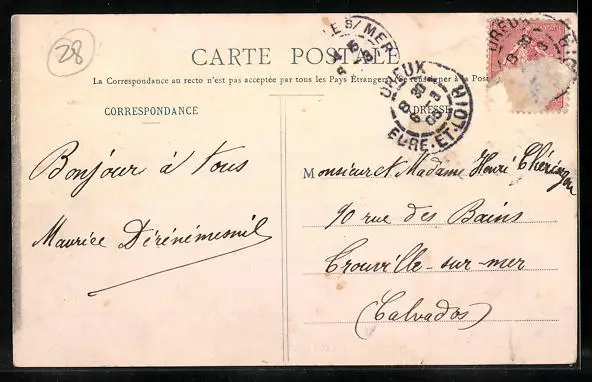 28
CARTE POSTALE
La Correspondance au recto n'est pas acceptée par tous les Pays Étrangers (Se renseigner à la Poste)
CORRESPONDANCE
ADRESSE
DREUX
EURE-ET-LOIR
E S/MER
Bonjour à tous
Maurice
Monsieur et Madame Henri
90 rue des Bains
Trouville-sur-mer
(Calvados)